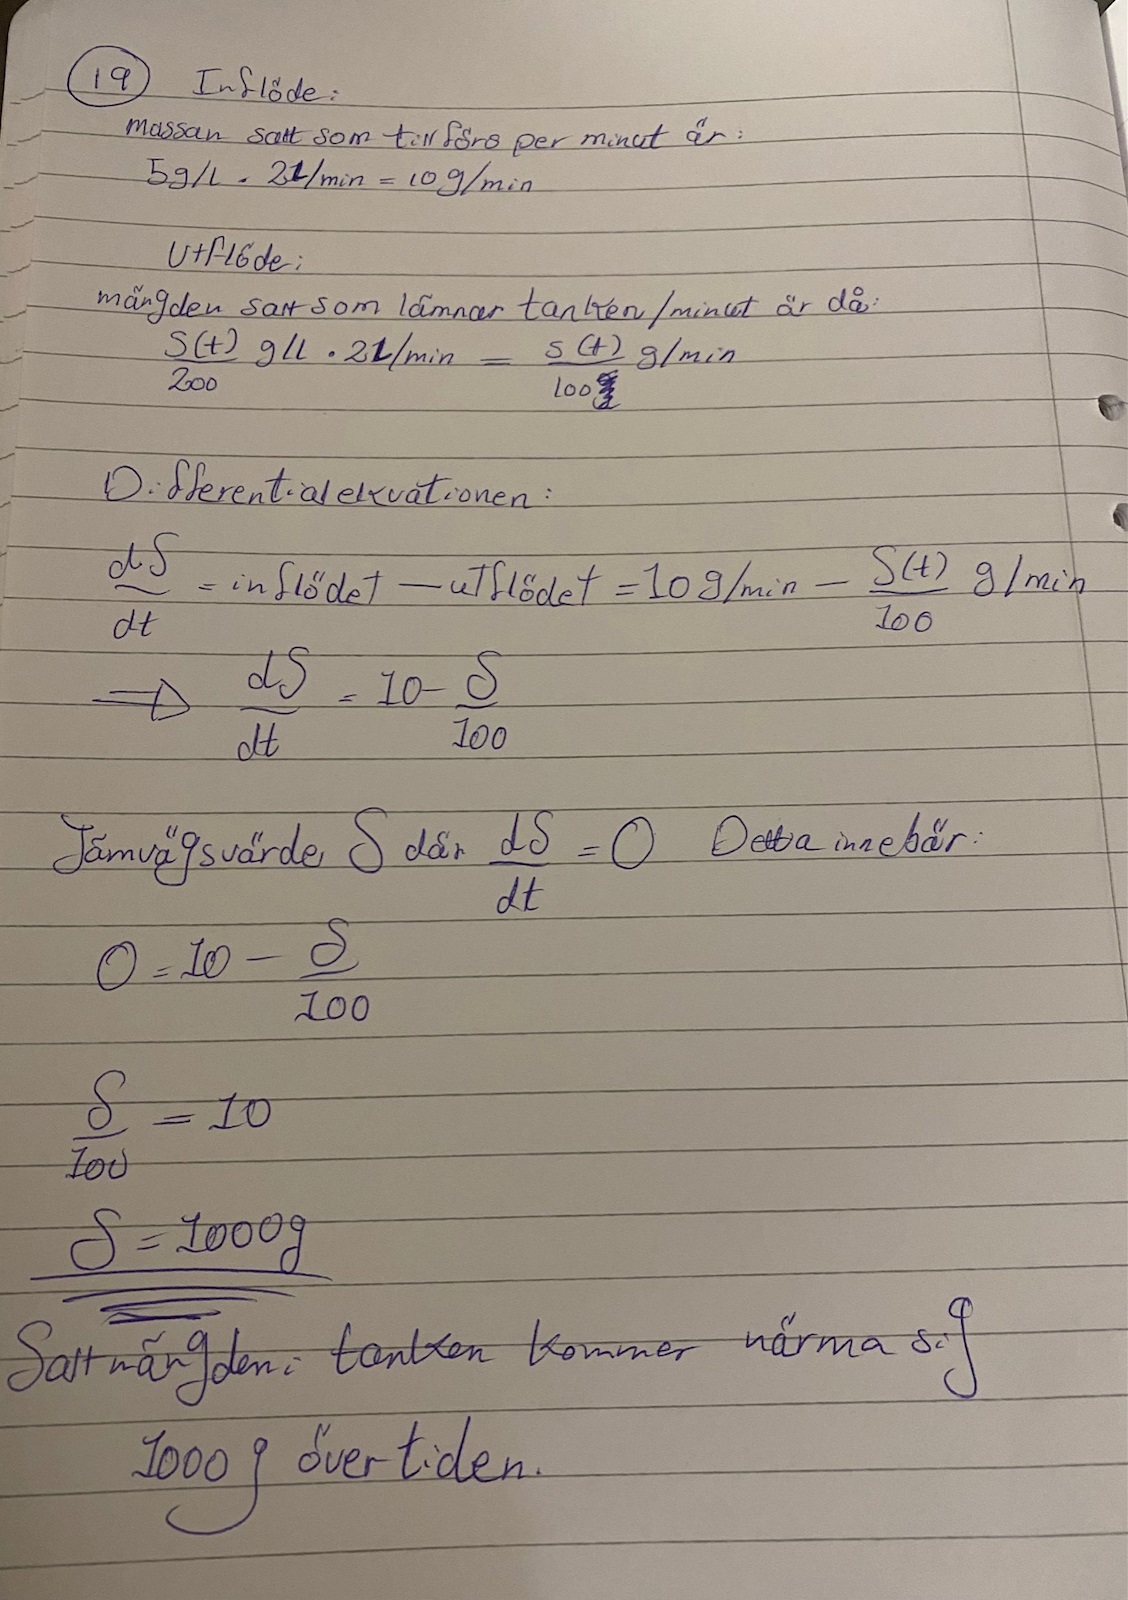 19 Inflöde:
massan salt som tillförs per minut är:
5g/l · 2l/min = 10 g/min
Utflöde:
mängden salt som lämnar tanken/minut är då:
S(t)/200 g/l · 2l/min = S(t)/100 g/min
Differentialekvationen:
dS/dt = inflödet – utflödet = 10 g/min – S(t)/100 g/min
⇒ dS/dt = 10 - S/100
Jämvägsvärde S där dS/dt = 0 Detta innebär:
0 = 10 – S/100
S/100 = 10
S = 1000g
Saltmängden i tanken kommer närma sig
1000 g över tiden.